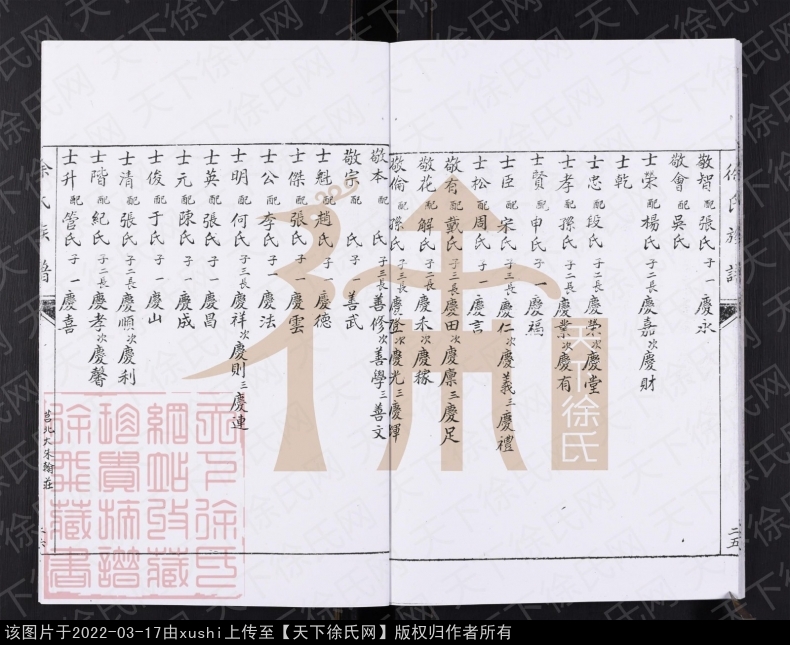 徐氏族譜
敬智配張氏子一慶永
敬會配吳氏
士榮配楊氏子二長慶嘉次慶財
士乾
士忠配段氏子二長慶榮次慶堂
士孝配孫氏子二長慶業次慶有
士賢配申氏子一慶福
士臣配宋氏子三長慶仁次慶義三慶禮
士松配周氏子一慶言
敬有配戴氏子三長慶田次慶廩三慶足
敬花配解氏子二長慶禾次慶稼
敬倫配孫氏子三長慶證次慶光三慶暉
二五
敬本配 氏子三長善修次善學三善文
敬宗配 氏子一善武
士魁配趙氏子一慶德
士傑配張氏子一慶雲
士公配李氏子一慶法
士明配何氏子三長慶祥次慶則三慶連
士英配張氏子一慶昌
士元配陳氏子一慶成
士俊配于氏子一慶山
士清配張氏子二長慶順次慶利
士階配紀氏子二長慶孝次慶馨
士升配管氏子一慶喜
徐氏族譜
莒北大朱翰莊
二六
徐
天下徐氏
天下徐氏
网站收藏
珍貴摘譜
徐氏藏書
天下徐氏网
该图片于2022-03-17由xushi上传至【天下徐氏网】版权归作者所有